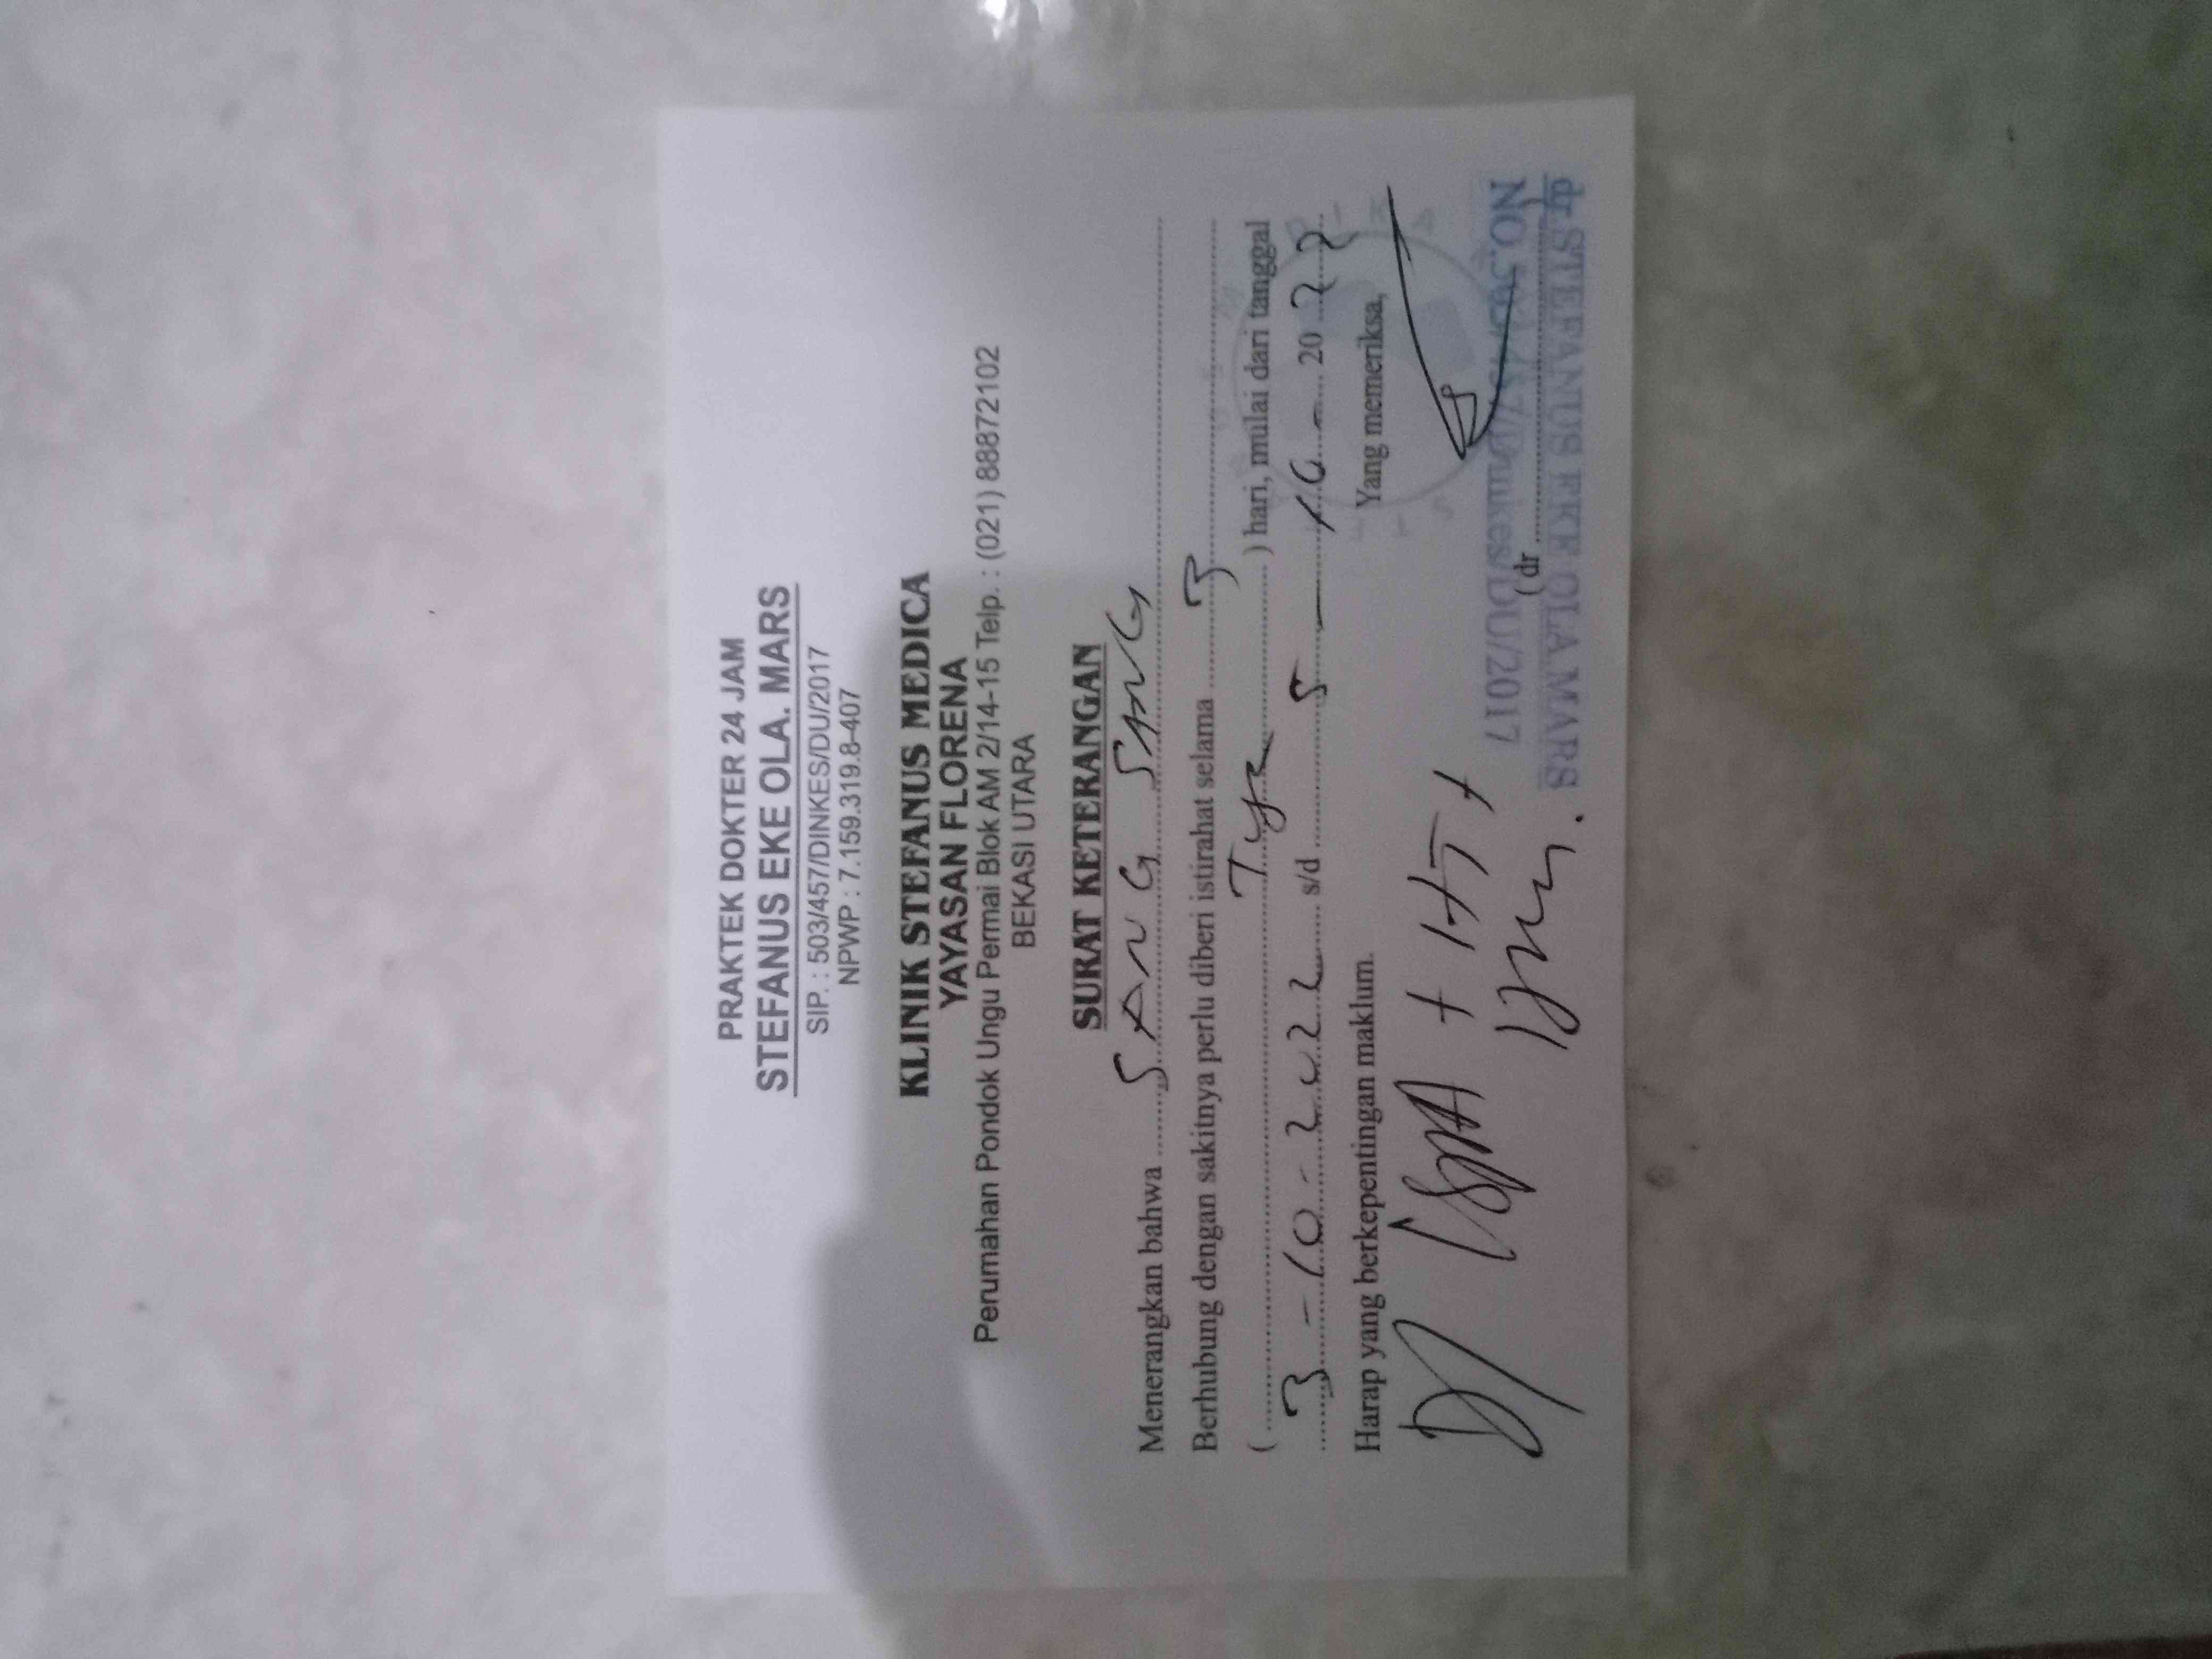 PRAKTEK DOKTER 24 JAM
STEFANUS EKE OLA. MARS
SIP. : 503/457/DINKES/DU/2017
NPWP : 7.159.319.8-407
KLINIK STEFANUS MEDICA
YAYASAN FLORENA
Perumahan Pondok Ungu Permai Blok AM 2/14-15 Telp. : (021) 88872102
BEKASI UTARA
SURAT KETERANGAN
Menerangkan bahwa SANG SANG
Berhubung dengan sakitnya perlu diberi istirahat selama 3
( Tiga ) hari, mulai dari tanggal
3 - 10 - 2022 s/d 5 - 10 - 2022
Harap yang berkepentingan maklum.
Yang memeriksa,
D/ ISPA + HT +
(dr
NO.503/457/Dinkes/DU/2017
dr.STEFANUS EKE OLA.MARS